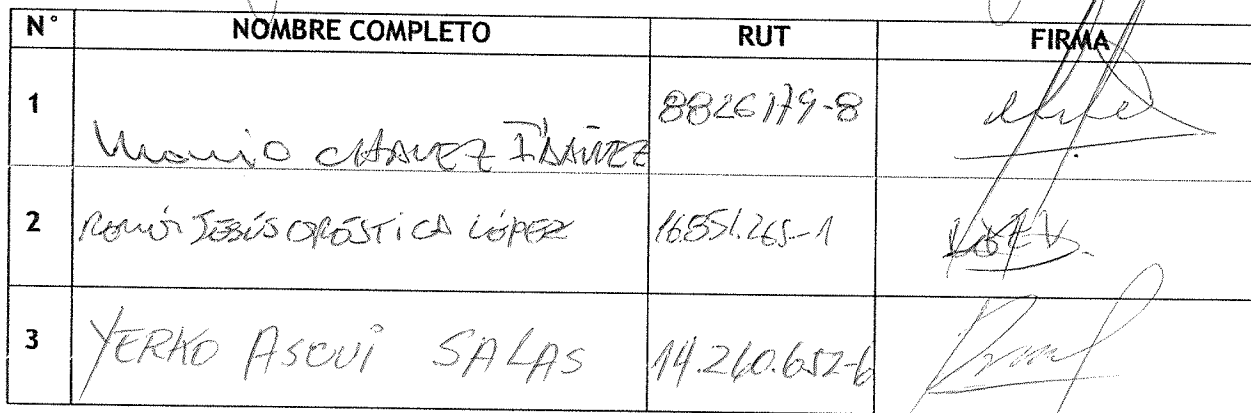 N° NOMBRE COMPLETO RUT FIRMA
1 Mario CHAVEZ IBAÑEZ 8826179-8
2 JESÚS ORÓSTICA LÓPEZ 16.551.265-1
3 YERKO ASCUI SALAS 14.260.652-6